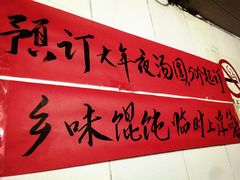 預订大年夜汤圆
乡味馄饨临时上